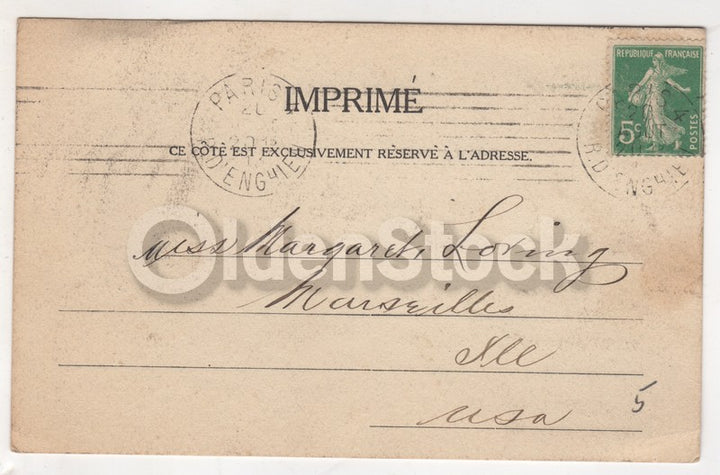 RÉPUBLIQUE FRANÇAISE
5c
POSTES
PARIS
R. D'ENGHIEN
PARIS
R. D'ENGHIEN
IMPRIMÉ
CE CÔTÉ EST EXCLUSIVEMENT RÉSERVÉ À L'ADRESSE.
OldenStock
Miss Margaret Loving
Marseilles
Ill
USA
5